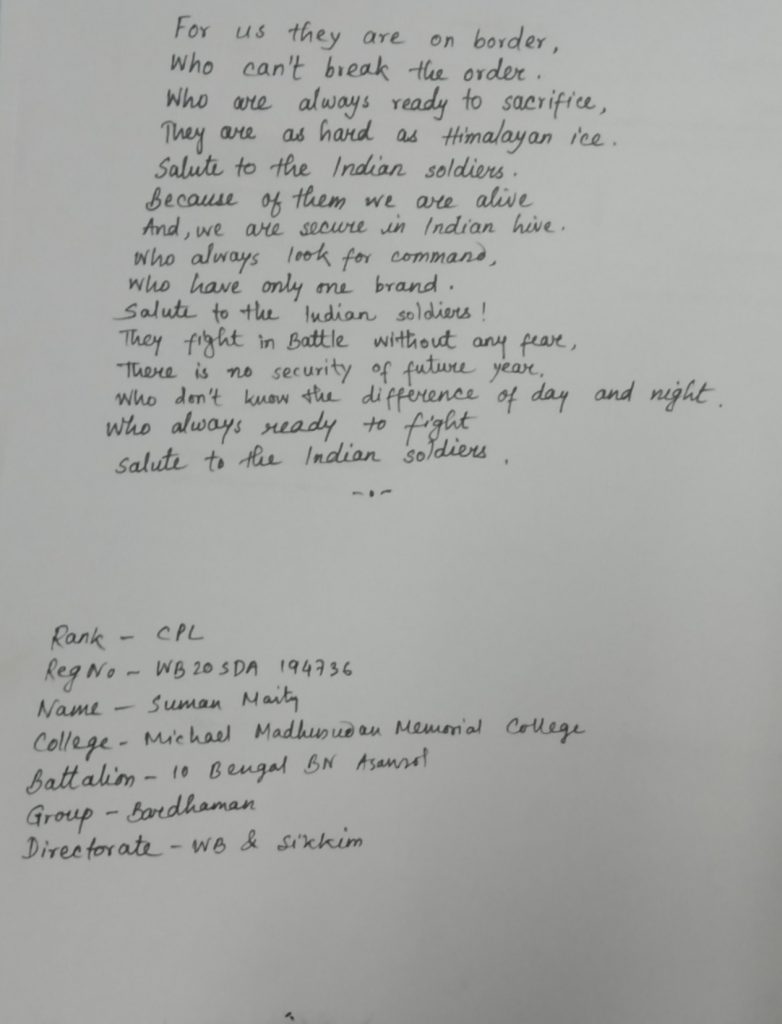 For us they are on border,
Who can't break the order.
Who are always ready to sacrifice,
They are as hard as Himalayan ice.
Salute to the Indian soldiers.
Because of them we are alive
And, we are secure in Indian hive.
Who always look for command,
Who have only one brand.
Salute to the Indian soldiers!
They fight in Battle without any fear,
There is no security of future year.
Who don't know the difference of day and night.
Who always ready to fight
Salute to the Indian soldiers.
Rank - CPL
Reg No - WB 20 SDA 194736
Name - Suman Maity
College - Michael Madhusudan Memorial College
Battalion - 10 Bengal BN Asansol
Group - Bardhaman
Directorate - WB & Sikkim